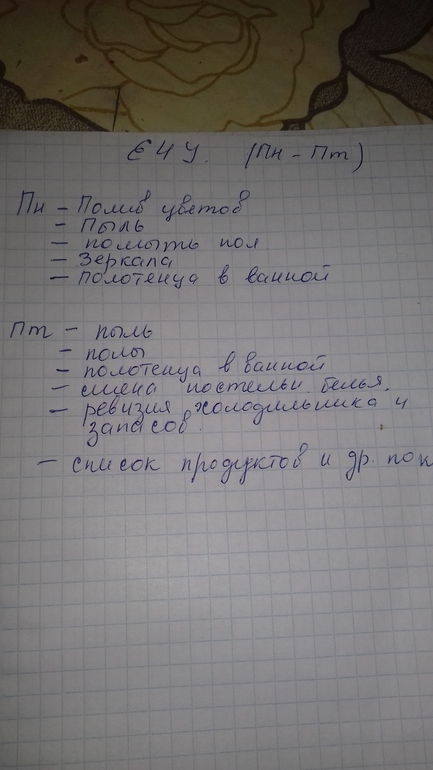 ЕЧУ. (Пн - Пт)
Пн - Полив цветов
- Пыль
- помыть пол
- Зеркала
- Полотенца в ванной
Пт - пыль
- полы
- полотенца в ванной
- смена постельн. белья.
- ревизия холодильника и
запасов.
- список продуктов и др. пок